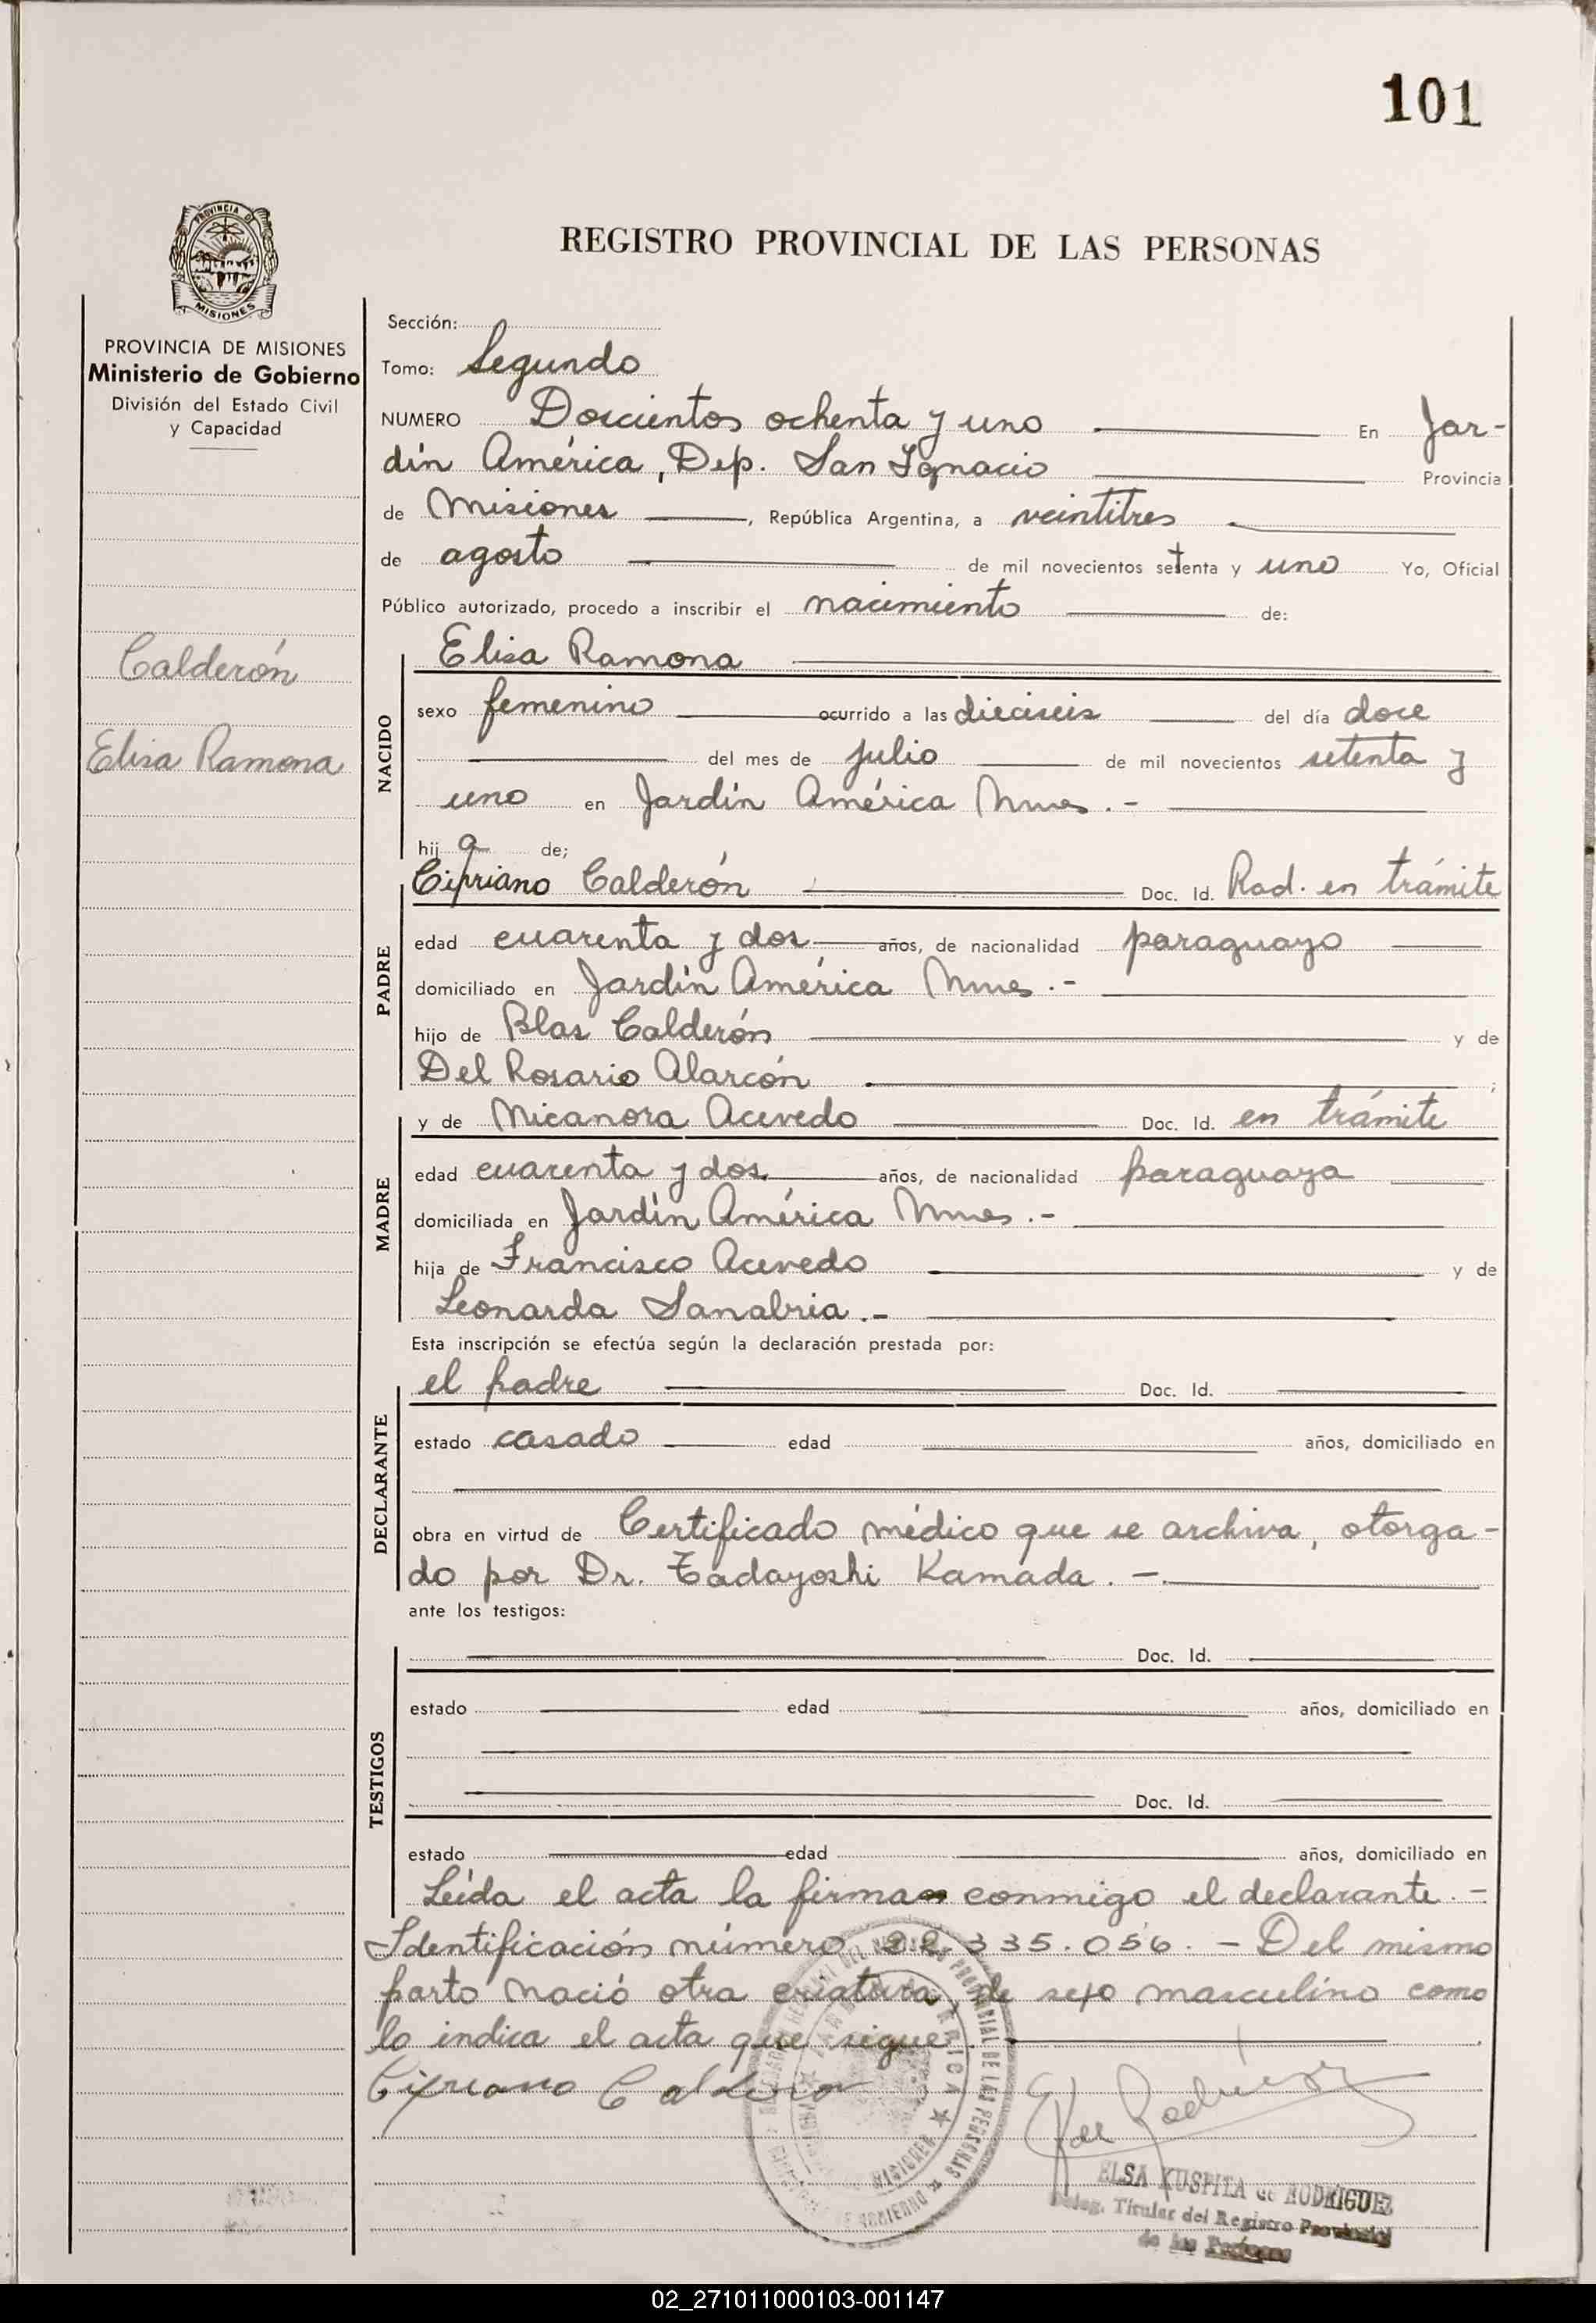 101
PROVINCIA DE
MISIONES
REGISTRO PROVINCIAL DE LAS PERSONAS
PROVINCIA DE MISIONES
Ministerio de Gobierno
División del Estado Civil
y Capacidad
Calderón
Elisa Ramona
Sección:
Tomo: Segundo
NUMERO Doscientos ochenta y uno En Jar-
dín América, Dep. San Ignacio Provincia
de Misiones, República Argentina, a veintitres
de agosto de mil novecientos setenta y uno Yo, Oficial
Público autorizado, procedo a inscribir el nacimiento de:
Elisa Ramona
NACIDO
sexo femenino ocurrido a las dieciseis del día doce
del mes de julio de mil novecientos setenta y
uno en Jardín América Mnes.-
hija de;
Cipriano Calderón Doc. Id. Rad. en trámite
PADRE
edad cuarenta y dos años, de nacionalidad paraguayo
domiciliado en Jardín América Mnes.-
hijo de Blas Calderón y de
Del Rosario Alarcón ;
y de Nicanora Acevedo Doc. Id. en trámite
MADRE
edad cuarenta y dos años, de nacionalidad paraguaya
domiciliada en Jardín América Mnes.-
hija de Francisco Acevedo y de
Leonarda Sanabria.-
Esta inscripción se efectúa según la declaración prestada por:
el padre Doc. Id.
DECLARANTE
estado casado edad años, domiciliado en
obra en virtud de Certificado médico que se archiva, otorga-
do por Dr. Tadayoshi Kamada.-
ante los testigos:
Doc. Id.
TESTIGOS
estado edad años, domiciliado en
Doc. Id.
estado edad años, domiciliado en
Leída el acta la firma conmigo el declarante.-
Identificación número 22.335.056.- Del mismo
parto nació otra criatura, de sexo masculino como
lo indica el acta que sigue.
Cipriano Calderon
ELSA KUSPITA de RODRIGUEZ
Deleg. Titular del Registro Provincial
de las Personas
02_271011000103-001147